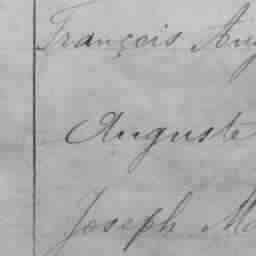 François Aug
Auguste
Joseph Ma